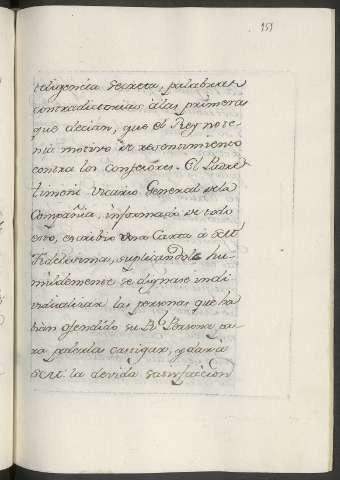 151
teligencia secreta, palabras
contradictorias à las primeras
que decian, que el Rey no te-
nia motivo de resentimiento
contra los Confesores. El Padre
Vicario General de la
Compañia, informado de todo
esto, escribio una Carta à S.M.
Fidelissima, suplicandole hu-
mildemente se dignase indi-
vidualizar las personas que ha-
bian ofendido su Rl. Persona, pa-
ra poderlas castigar, y dar à
S.M. la devida satisfaccion